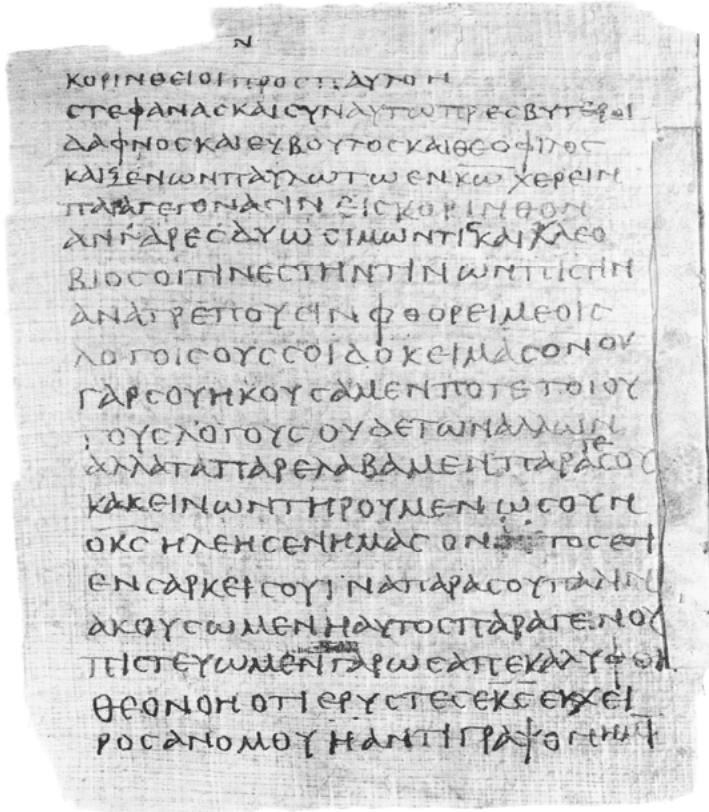 Ν
ΚΟΡΙΝΘΕΙΟΙ ΠΡΟΣ ΠΑΥΛΟΝ
ϹΤΕΦΑΝΑϹ ΚΑΙ ϹΥΝ ΑΥΤΩ ΠΡΕϹΒΥΤΕΡΟΙ
ΔΑΦΝΟϹ ΚΑΙ ΕΥΒΟΥΛΟϹ ΚΑΙ ΘΕΟΦΙΛΟϹ
ΚΑΙ ΞΕΝΩΝ ΠΑΥΛΩ ΤΩ ΕΝ ΚΩ ΧΕΡΕΙΝ
ΠΑΡΑΓΕΓΟΝΑϹΙΝ ΕΙϹ ΚΟΡΙΝΘΟΝ
ΑΝΔΡΕϹ ΔΥΩ ϹΙΜΩΝ ΤΙϹ ΚΑΙ ΚΛΕΟ
ΒΙΟϹ ΟΙΤΙΝΕϹ ΤΗΝ ΤΙΝΩΝ ΠΙϹΤΙΝ
ΑΝΑΤΡΕΠΟΥϹΙΝ ΦΘΟΡΕΙΜΕΟΙϹ
ΛΟΓΟΙϹ ΟΥϹ ϹΟΙ ΔΟΚΕΙΜΑϹΟΝ ΟΥ
ΓΑΡ ϹΟΥ ΗΚΟΥϹΑΜΕΝ ΠΟΤΕ ΤΟΙΟΥ
ΤΟΥϹ ΛΟΓΟΥϹ ΟΥΔΕ ΤΩΝ ΑΛΛΩΝ
ΑΛΛΑ ΤΑ ΠΑΡΕΛΑΒΑΜΕΝ ΠΑΡΑ ΤΕ ϹΟΥ
ΚΑΚΕΙΝΩΝ ΤΗΡΟΥΜΕΝ ΩϹ ΟΥΝ
Ο ΚϹ ΗΛΕΗϹΕΝ ΗΜΑϹ ΟΝΤΟϹ ΕΤΙ
ΕΝ ϹΑΡΚΕΙ ϹΟΥ ΙΝΑ ΠΑΡΑ ϹΟΥ ΠΑΛΙΝ
ΑΚΟΥϹΩΜΕΝ Η ΑΥΤΟϹ ΠΑΡΑΓΕΝΟΥ
ΠΙϹΤΕΥΩΜΕΝ ΓΑΡ ΩϹ ΑΠΕΚΑΛΥΦΘΗ
ΘΕΟΝΟΗ ΟΤΙ ΕΡΥϹΤΕ ϹΕ ΚϹ ΕΚ ΧΕΙ
ΡΟϹ ΑΝΟΜΟΥ Η ΑΝΤΙΓΡΑΨΟΝ ΗΜΙΝ